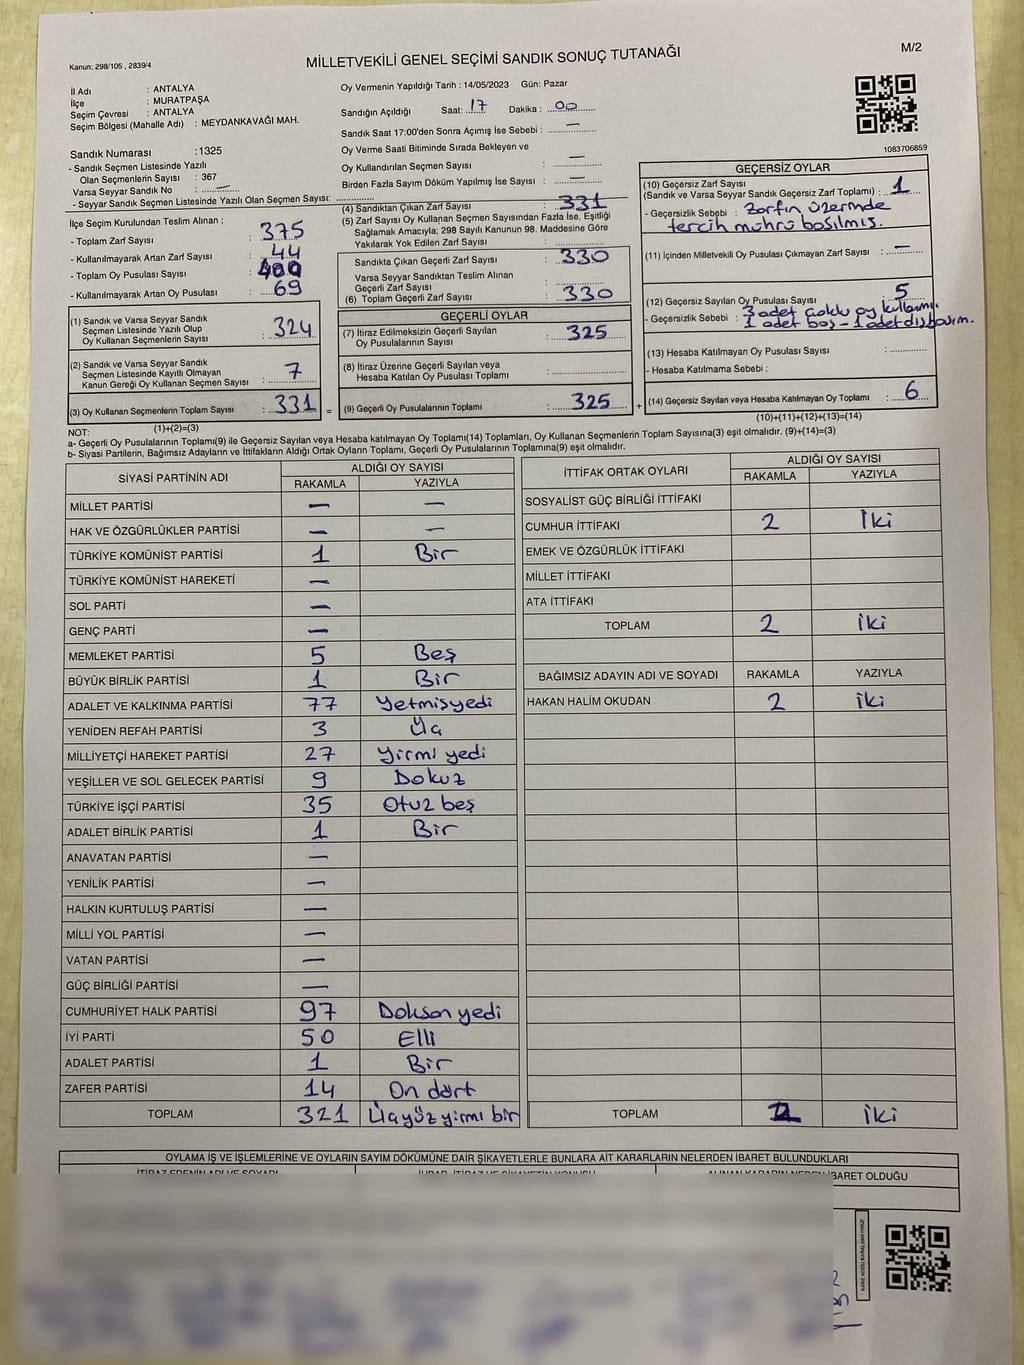 Kanun: 298/105 , 2839/4
MİLLETVEKİLİ GENEL SEÇİMİ SANDIK SONUÇ TUTANAĞI
M/2
İl Adı : ANTALYA
İlçe : MURATPAŞA
Seçim Çevresi : ANTALYA
Seçim Bölgesi (Mahalle Adı) : MEYDANKAVAĞI MAH.
Oy Vermenin Yapıldığı Tarih : 14/05/2023 Gün: Pazar
Sandığın Açıldığı Saat: 17 Dakika : 00
Sandık Saat 17:00'den Sonra Açımış İse Sebebi : —
Oy Verme Saati Bitiminde Sırada Bekleyen ve
Oy Kullandırılan Seçmen Sayısı : —
Birden Fazla Sayım Döküm Yapılmış İse Sayısı : —
1083706859
Sandık Numarası :1325
- Sandık Seçmen Listesinde Yazılı
Olan Seçmenlerin Sayısı : 367
Varsa Seyyar Sandık No : —
- Seyyar Sandık Seçmen Listesinde Yazılı Olan Seçmen Sayısı:
İlçe Seçim Kurulundan Teslim Alınan :
- Toplam Zarf Sayısı : 375
- Kullanılmayarak Artan Zarf Sayısı : 44
- Toplam Oy Pusulası Sayısı : 400
- Kullanılmayarak Artan Oy Pusulası : 69
(1) Sandık ve Varsa Seyyar Sandık
Seçmen Listesinde Yazılı Olup
Oy Kullanan Seçmenlerin Sayısı : 324
(2) Sandık ve Varsa Seyyar Sandık
Seçmen Listesinde Kayıtlı Olmayan
Kanun Gereği Oy Kullanan Seçmen Sayısı : 7
(3) Oy Kullanan Seçmenlerin Toplam Sayısı : 331 =
(1)+(2)=(3)
(4) Sandıktan Çıkan Zarf Sayısı : 331
(5) Zarf Sayısı Oy Kullanan Seçmen Sayısından Fazla İse, Eşitliği
Sağlamak Amacıyla; 298 Sayılı Kanunun 98. Maddesine Göre
Yakılarak Yok Edilen Zarf Sayısı :
Sandıkta Çıkan Geçerli Zarf Sayısı : 330
Varsa Seyyar Sandıktan Teslim Alınan
Geçerli Zarf Sayısı :
(6) Toplam Geçerli Zarf Sayısı : 330
GEÇERLİ OYLAR
(7) İtiraz Edilmeksizin Geçerli Sayılan
Oy Pusulalarının Sayısı : 325
(8) İtiraz Üzerine Geçerli Sayılan veya
Hesaba Katılan Oy Pusulası Toplamı :
(9) Geçerli Oy Pusulalarının Toplamı : 325 +
GEÇERSİZ OYLAR
(10) Geçersiz Zarf Sayısı
(Sandık ve Varsa Seyyar Sandık Geçersiz Zarf Toplamı) : 1
- Geçersizlik Sebebi : Zarfın üzerinde
tercih mührü basılmış.
(11) İçinden Milletvekili Oy Pusulası Çıkmayan Zarf Sayısı : —
(12) Geçersiz Sayılan Oy Pusulası Sayısı : 5
- Geçersizlik Sebebi : 3 adet çoklu oy kullanımı.
1 adet boş - 1 adet dış basım.
(13) Hesaba Katılmayan Oy Pusulası Sayısı :
- Hesaba Katılmama Sebebi :
(14) Geçersiz Sayılan veya Hesaba Katılmayan Oy Toplamı : 6
(10)+(11)+(12)+(13)=(14)
NOT:
a- Geçerli Oy Pusulalarının Toplamı(9) ile Geçersiz Sayılan veya Hesaba katılmayan Oy Toplamı(14) Toplamları, Oy Kullanan Seçmenlerin Toplam Sayısına(3) eşit olmalıdır. (9)+(14)=(3)
b- Siyasi Partilerin, Bağımsız Adayların ve İttifakların Aldığı Ortak Oyların Toplamı, Geçerli Oy Pusulalarının Toplamına(9) eşit olmalıdır.
SİYASİ PARTİNİN ADI ALDIĞI OY SAYISI
RAKAMLA YAZIYLA
MİLLET PARTİSİ — —
HAK VE ÖZGÜRLÜKLER PARTİSİ — —
TÜRKİYE KOMÜNİST PARTİSİ 1 Bir
TÜRKİYE KOMÜNİST HAREKETİ —
SOL PARTİ —
GENÇ PARTİ —
MEMLEKET PARTİSİ 5 Beş
BÜYÜK BİRLİK PARTİSİ 1 Bir
ADALET VE KALKINMA PARTİSİ 77 Yetmişyedi
YENİDEN REFAH PARTİSİ 3 Üç
MİLLİYETÇİ HAREKET PARTİSİ 27 Yirmi yedi
YEŞİLLER VE SOL GELECEK PARTİSİ 9 Dokuz
TÜRKİYE İŞÇİ PARTİSİ 35 Otuz beş
ADALET BİRLİK PARTİSİ 1 Bir
ANAVATAN PARTİSİ —
YENİLİK PARTİSİ —
HALKIN KURTULUŞ PARTİSİ —
MİLLİ YOL PARTİSİ —
VATAN PARTİSİ —
GÜÇ BİRLİĞİ PARTİSİ —
CUMHURİYET HALK PARTİSİ 97 Doksan yedi
İYİ PARTİ 50 Elli
ADALET PARTİSİ 1 Bir
ZAFER PARTİSİ 14 On dört
TOPLAM 321 Üçyüz yirmi bir
İTTİFAK ORTAK OYLARI ALDIĞI OY SAYISI
RAKAMLA YAZIYLA
SOSYALİST GÜÇ BİRLİĞİ İTTİFAKI
CUMHUR İTTİFAKI 2 İki
EMEK VE ÖZGÜRLÜK İTTİFAKI
MİLLET İTTİFAKI
ATA İTTİFAKI
TOPLAM 2 İki
BAĞIMSIZ ADAYIN ADI VE SOYADI RAKAMLA YAZIYLA
HAKAN HALİM OKUDAN 2 İki
TOPLAM 2 İki
OYLAMA İŞ VE İŞLEMLERİNE VE OYLARIN SAYIM DÖKÜMÜNE DAİR ŞİKAYETLERLE BUNLARA AİT KARARLARIN NELERDEN İBARET BULUNDUKLARI
İTİRAZ EDENİN ADI VE SOYADI İHBAR, İTİRAZ VE ŞİKAYETİN KONUSU ALINAN KARARIN NEDEN İBARET OLDUĞU